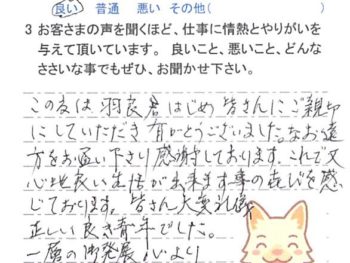 良い 普通 悪い その他(
3 お客さまの声を聞くほど、仕事に情熱とやりがいを
与えて頂いています。 良いこと、悪いこと、どんな
ささいな事でもぜひ、お聞かせ下さい。
この友は 羽良君はじめ 皆さんにご親切
にしていただき 有がとうございました。なお遠
方をお運い下さり感謝しております。これで又
心地良い生活が出来ます事の喜びを感
じております。皆さん大変礼儀
正しい良き青年でした。
一層の御発展心より